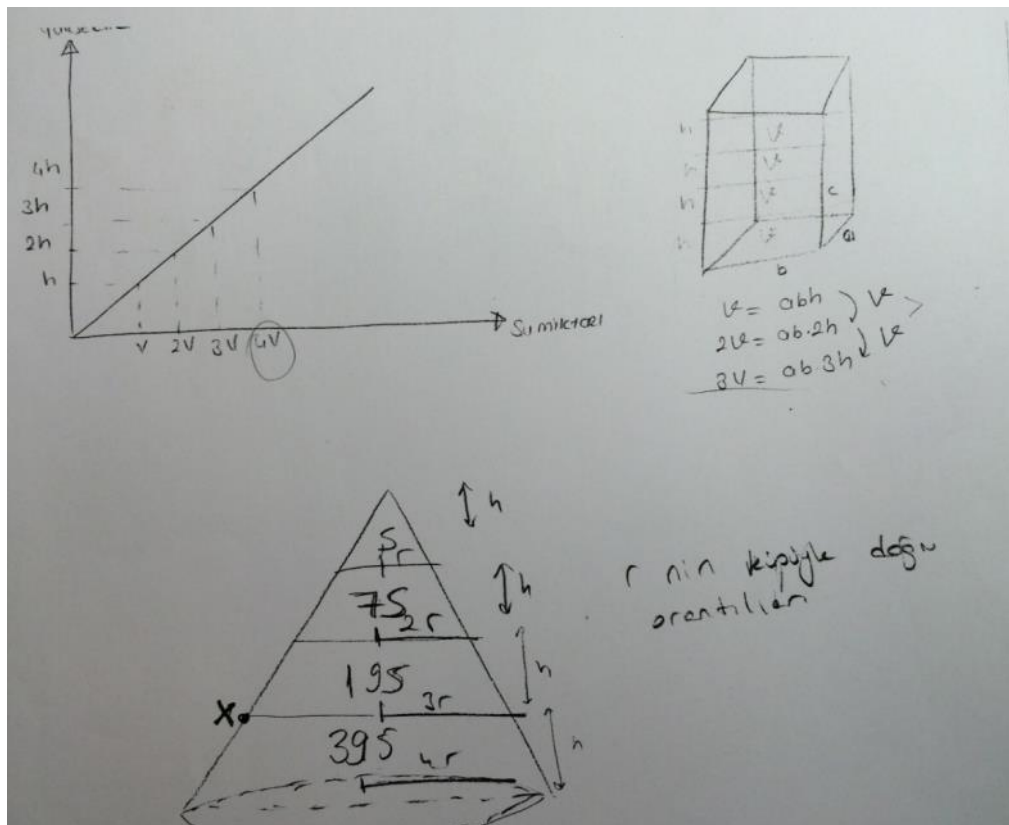 4h
3h
2h
h
V 2V 3V 4V
Su miktarı
h V
h V
h V
h V
c
a
b
V = abh V
2V = ab.2h V
3V = ab.3h
h
S r
h
7S 2r
h
19S 3r
X
h
39S 4r
r nin küpüyle doğru
orantılıdır